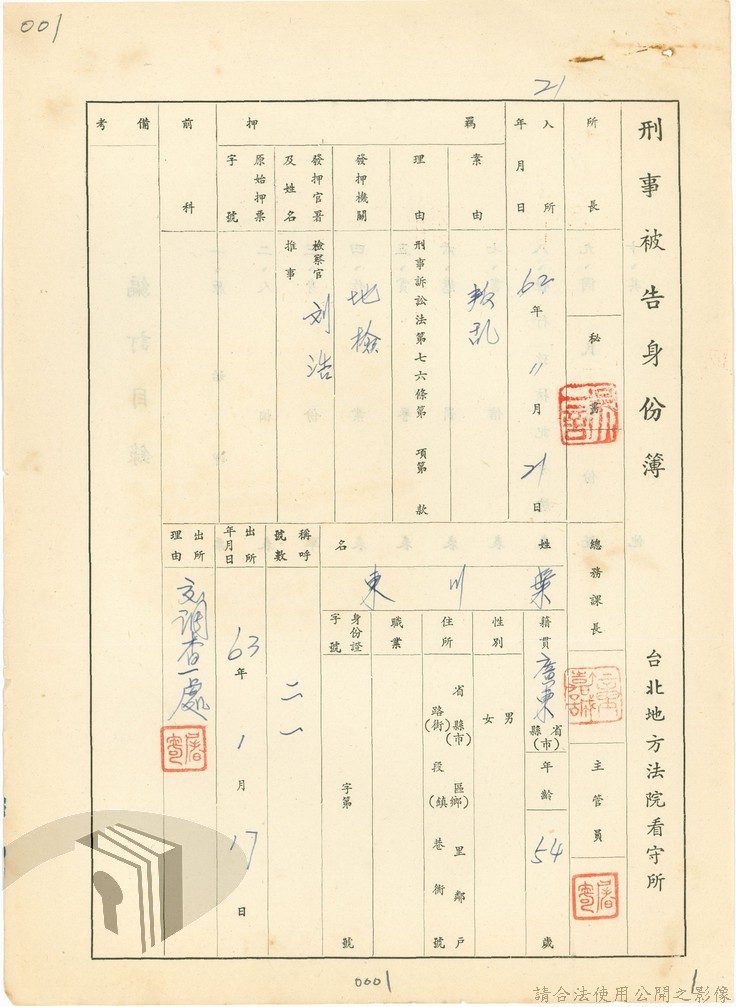 001
21
刑事被告身份簿
台北地方法院看守所
所長
秘書
總務課長
主管員
入所年月日
62年11月21日
羈押
案由
叛乱
理由
刑事訴訟法第七六條第 項第 款
發押機關
地檢
發押官署及姓名
檢察官
推事
刘浩
原始押票字號
前科
備考
姓名
葉川東
籍貫
廣東
省縣(市)
年齡
54歲
性別
男
女
住所
省縣(市)區鄉(鎮)里鄰戶
路(街)段巷衖號
職業
身份證字號
字第 號
稱呼號數
二一
出所年月日
63年1月17日
出所理由
交調查一處
0001
1
請合法使用公開之影像